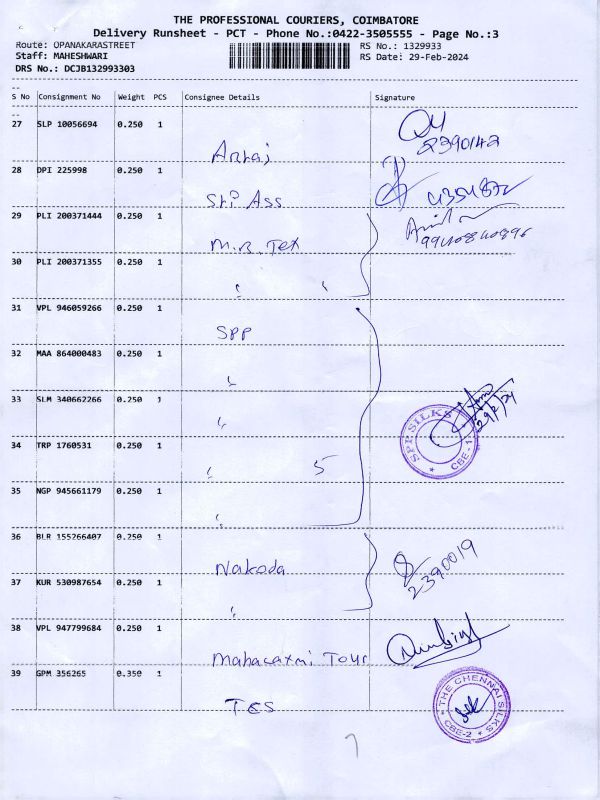 THE PROFESSIONAL COURIERS, COIMBATORE
Delivery Runsheet - PCT - Phone No.:0422-3505555 - Page No.:3
Route: OPANAKARASTREET
RS No.: 1329933
Staff: MAHESHWARI
RS Date: 29-Feb-2024
DRS No.: DCJB132993303
S No Consignment No Weight PCS Consignee Details Signature
27 SLP 10056694 0.250 1
2390142
28 DPI 225998 0.250 1
Sri Ass
29 PLI 200371444 0.250 1
M.R. Tex
30 PLI 200371355 0.250 1
31 VPL 946059266 0.250 1
SPP
32 MAA 864000483 0.250 1
33 SLM 340662266 0.250 1
29/2/24
SPP SILKS
CBE-1
34 TRP 1760531 0.250 1
5
35 NGP 945661179 0.250 1
36 BLR 155266407 0.250 1
Nakoda
2390019
37 KUR 530987654 0.250 1
38 VPL 947799684 0.250 1
Mahalaxmi Tour
39 GPM 356265 0.350 1
TCS
THE CHENNAI SILKS
CBE-2